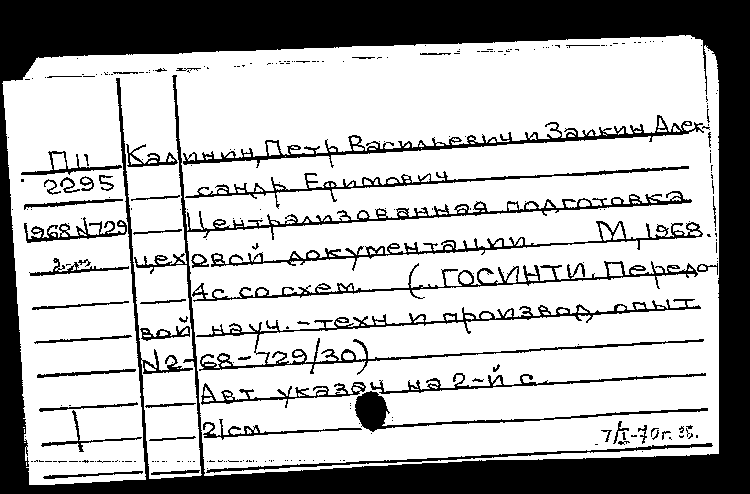 П11 Калинин, Петр Васильевич и Заикин, Алек-
2295 сандр Ефимович
1968 N729 Централизованная подготовка
2 экз. цеховой документации. М., 1968.
4с со схем. (...ГОСИНТИ. Передо-
вой науч.-техн и производ. опыт
N2-68-729/30)
Авт. указан на 2-й с.
21см
7/I-70г.